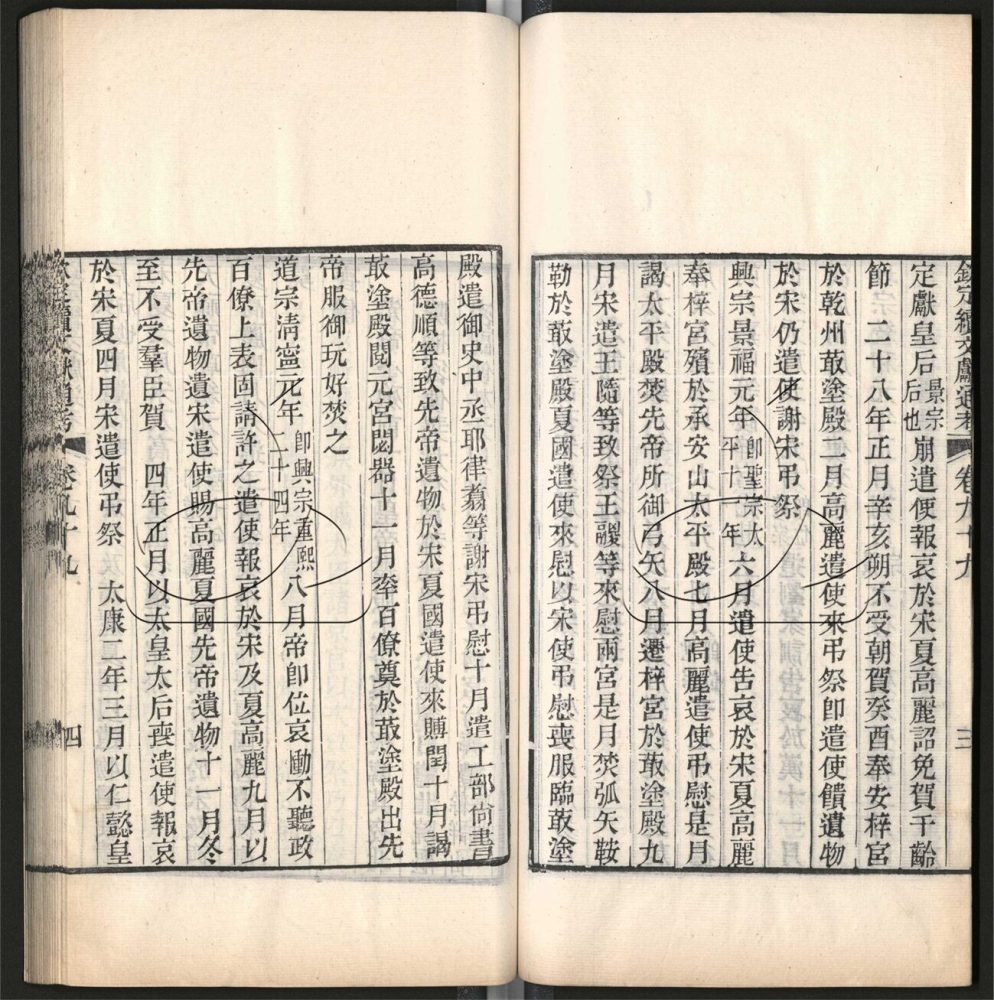 欽定續文獻通考 卷九十九 三
定獻皇后景宗后也崩遣使報哀於宋夏高麗詔免賀千齡
節 二十八年正月辛亥朔不受朝賀癸酉奉安梓宮
於乾州菆塗殿二月高麗遣使來弔祭卽遣使饋遺物
於宋仍遣使謝宋弔祭
興宗景福元年卽聖宗太平十一年六月遣使告哀於宋夏高麗
奉梓宮殯於承安山太平殿七月高麗遣使弔慰是月
謁太平殿焚先帝所御弓矢八月遷梓宮於菆塗殿九
月宋遣王隨等致祭王鬷等來慰兩宮是月焚弧矢鞍
勒於菆塗殿夏國遣使來慰以宋使弔慰喪服臨菆塗
殿遣御史中丞耶律翥等謝宋弔慰十月遣工部尙書
高德順等致先帝遺物於宋夏國遣使來賻閏十月謁
菆塗殿閱元宮閟器十一月率百僚奠於菆塗殿出先
帝服御玩好焚之
道宗淸寧元年卽興宗重熙二十四年八月帝卽位哀慟不聽政
百僚上表固請許之遣使報哀於宋及夏高麗九月以
先帝遺物遺宋遣使賜高麗夏國先帝遺物十一月冬
至不受羣臣賀 四年正月以太皇太后喪遣使報哀
於宋夏四月宋遣使弔祭 太康二年三月以仁懿皇
卷九十九 四